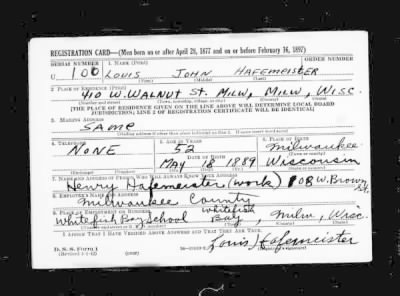 REGISTRATION CARD—(Men born on or after April 28, 1877 and on or before February 16, 1897)
SERIAL NUMBER 1. NAME (Print) ORDER NUMBER
U 100 LOUIS JOHN HAFEMEISTER
(First) (Middle) (Last)
2. PLACE OF RESIDENCE (Print)
410 W. WALNUT ST. MILW, MILW, WISC.
(Number and street) (Town, township, village, or city) (County) (State)
[THE PLACE OF RESIDENCE GIVEN ON THE LINE ABOVE WILL DETERMINE LOCAL BOARD
JURISDICTION; LINE 2 OF REGISTRATION CERTIFICATE WILL BE IDENTICAL]
3. MAILING ADDRESS
SAME
[Mailing address if other than place indicated on line 2. If same insert word same]
4. TELEPHONE 5. AGE IN YEARS 6. PLACE OF BIRTH
NONE 52 Milwaukee
DATE OF BIRTH (Town or county)
MAY 18 1889 Wisconsin
(Exchange) (Number) (Mo.) (Day) (Yr.) (State or country)
7. NAME AND ADDRESS OF PERSON WHO WILL ALWAYS KNOW YOUR ADDRESS
Henry Hafemeister (work) W. Brown St.
8. EMPLOYER'S NAME AND ADDRESS
Milwaukee County
9. PLACE OF EMPLOYMENT OR BUSINESS
Whitefish Bay School Whitefish Bay, Milw, Wisc.
(Number and street or R. F. D. number) (Town) (County) (State)
I AFFIRM THAT I HAVE VERIFIED ABOVE ANSWERS AND THAT THEY ARE TRUE.
D. S. S. Form 1
(Revised 4-1-42) (over) Louis J Hafemeister